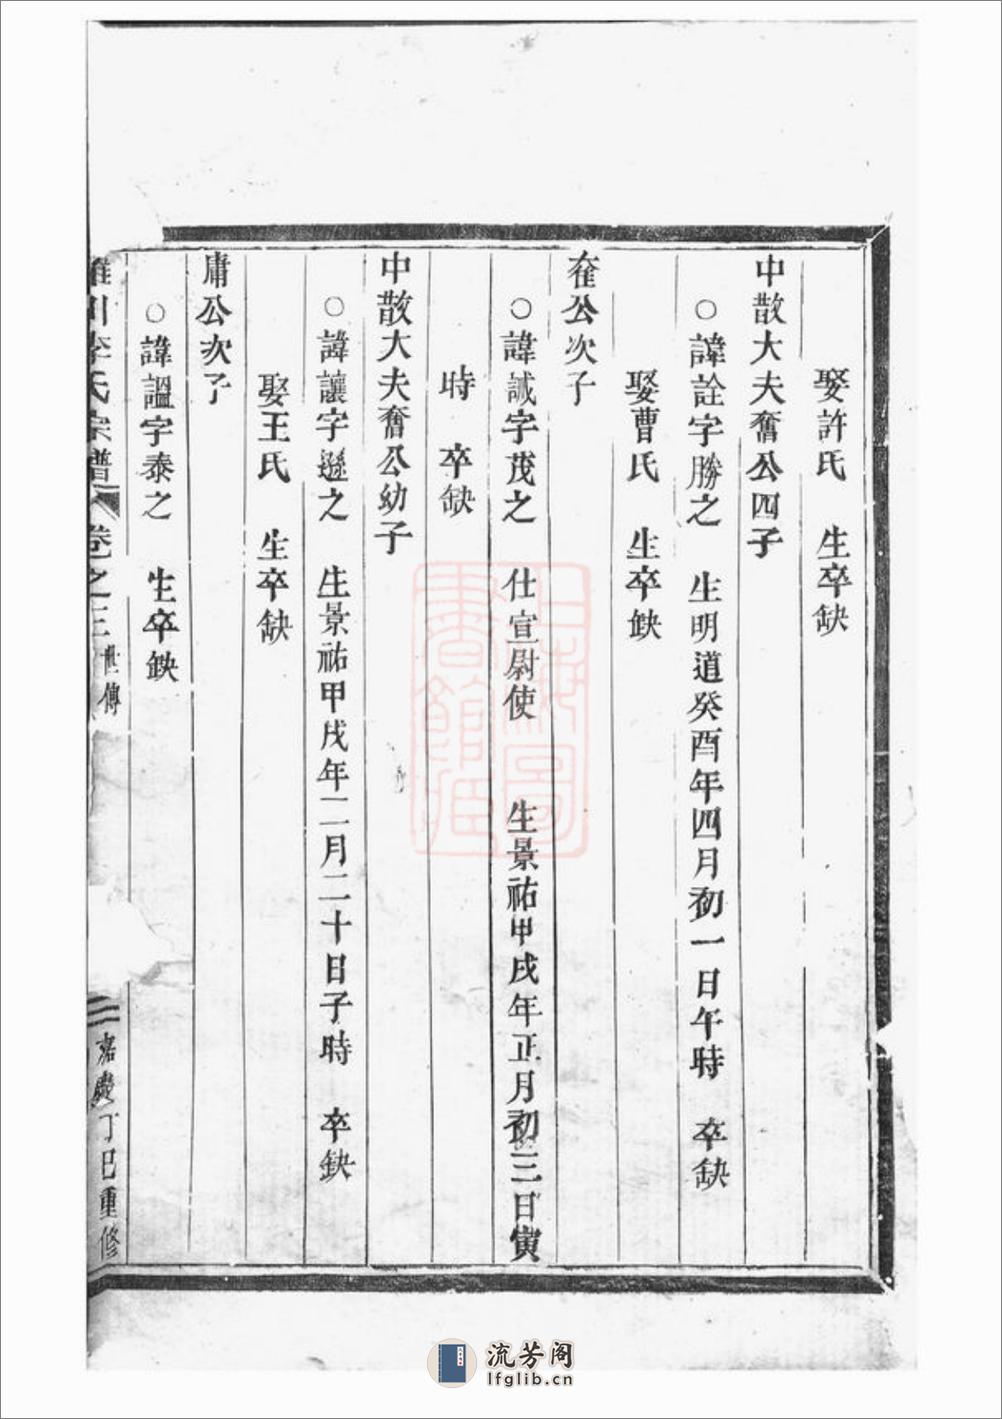 娶許氏　生卒缺
中散大夫奮公四子
○諱詮字勝之　生明道癸酉年四月初一日午時　卒缺
娶曹氏　生卒缺
奞公次子
○諱誠字茂之　仕宣尉使　生景祐甲戌年正月初三日寅
時　卒缺
中散大夫奮公幼子
○諱讓字遜之　生景祐甲戌年二月二十日子時　卒缺
娶王氏　生卒缺
庸公次子
○諱諨字泰之　生卒缺
川李氏宗譜　卷之三　世傳　嘉慶丁巳重修
上海圖
書館藏
流芳阁
lfglib.cn